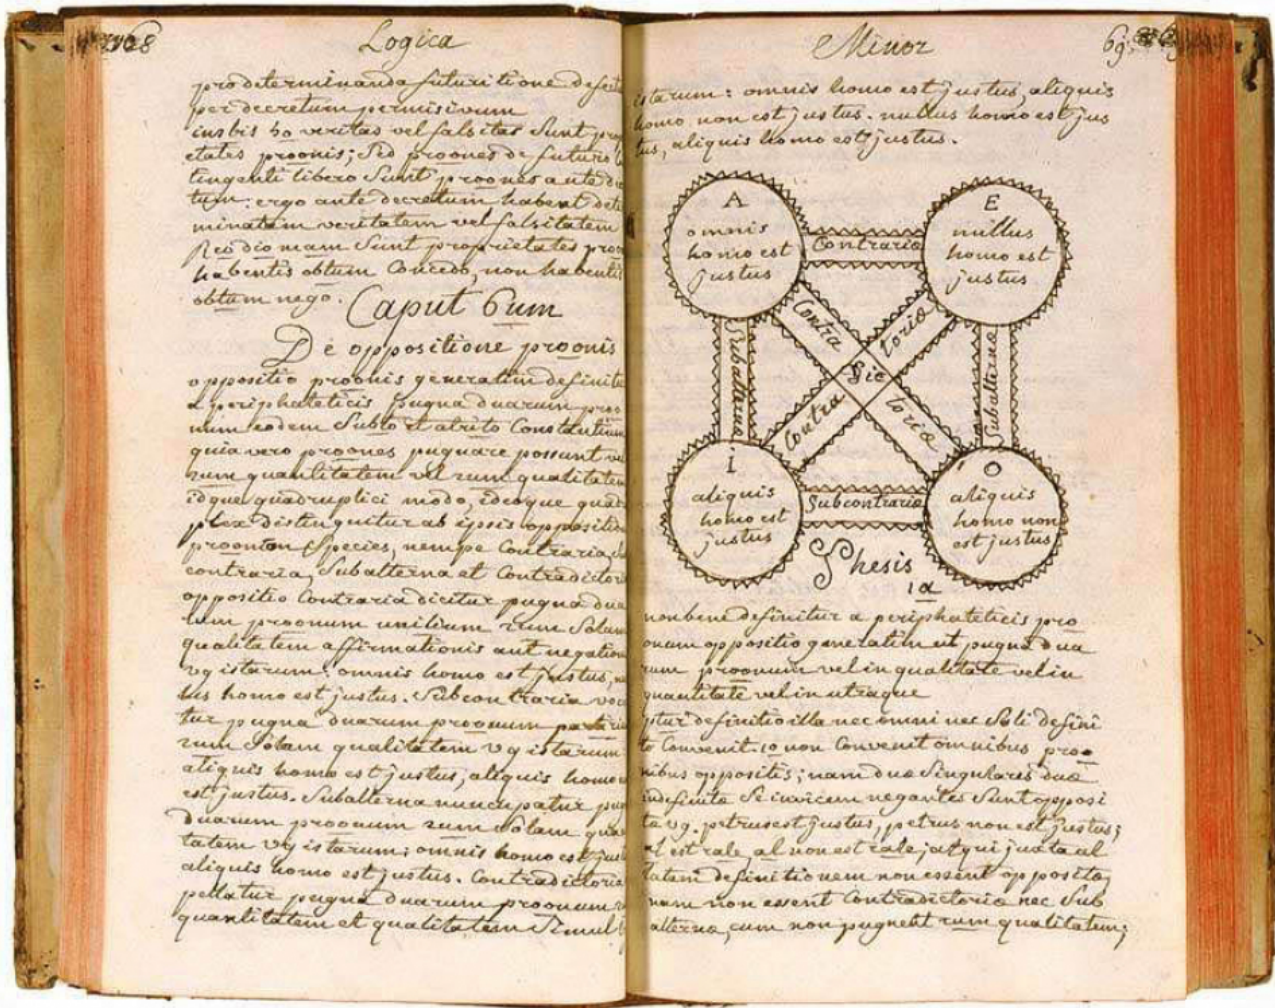 68
Logica
pro determinanda futuritione defect
per decretum permisivum
insbis ho veritas vel falsitas Sunt prop
etates proonis; Sed proones de futuro
tingenti libero Sunt proones ante d
tum: ergo ante decretum habent dete
minatam veritatem vel falsitatem
Reo dio mam Sunt proprietates proo
habentis obtum Concedo, non habentis
obtum nego.
Caput 6um
De oppositione proonis
oppositio proonis generatim definitu
a periphateticis pugna duarum proo
num eodem Subto et atrito Constantium
quia vero proones pugnare possunt ve
rum quantitatem vel rum qualitatem
idque quadruplici modo, ideoque quad
plex distinguitur ab ipsis oppositio
proonum Species, nempe Contraria,
contraria, Subalterna et Contradictor
oppositio Contraria dicitur pugna dua
rum proonum rum Solam
qualitatem affirmationis aut negation
vg istarum: omnis homo est justus,
lus homo est justus. Subcontraria voca
tur pugna duarum proonum
rum Solam qualitatem vg istarum
aliquis homo est justus, aliquis homo
est justus. Subalterna nuncupatur pug
duarum proonum rum Solam qua
tatem vg istarum: omnis homo est just
aliquis homo est justus. Contradictoria
pellatur pugna duarum proonum
quantitatem et qualitatem Simul
Minor
69
istarum: omnis homo est justus, aliquis
homo non est justus. nullus homo est jus
tus, aliquis homo est justus.
A
omnis
homo est
justus
Contrariæ
E
nullus
homo est
justus
Contra
toriæ
Subalternæ
dic
Subalternæ
Contra
toriæ
I
aliquis
homo est
justus
Subcontrariæ
O
aliquis
homo non
est justus
Thesis
1a
non bene definitur a periphateticis pro
onum oppositio generatim ut pugna dua
rum proonum vel in qualitate vel in
quantitate vel in utraque
ptur definitio illa nec omni nec Soli defini
to Convenit. 1o non Convenit omnibus proo
nibus oppositis; nam duæ Singulares duæ
indefinitæ Se invicem negantes Sunt opposi
tæ vg. petrus est justus, petrus non est justus;
al est rale, al non est rale; atqui juxta al
latam definitionem non essent oppositæ,
nam non essent Contradictoriæ nec Sub
alternæ, cum non pugnent rum qualitatem;